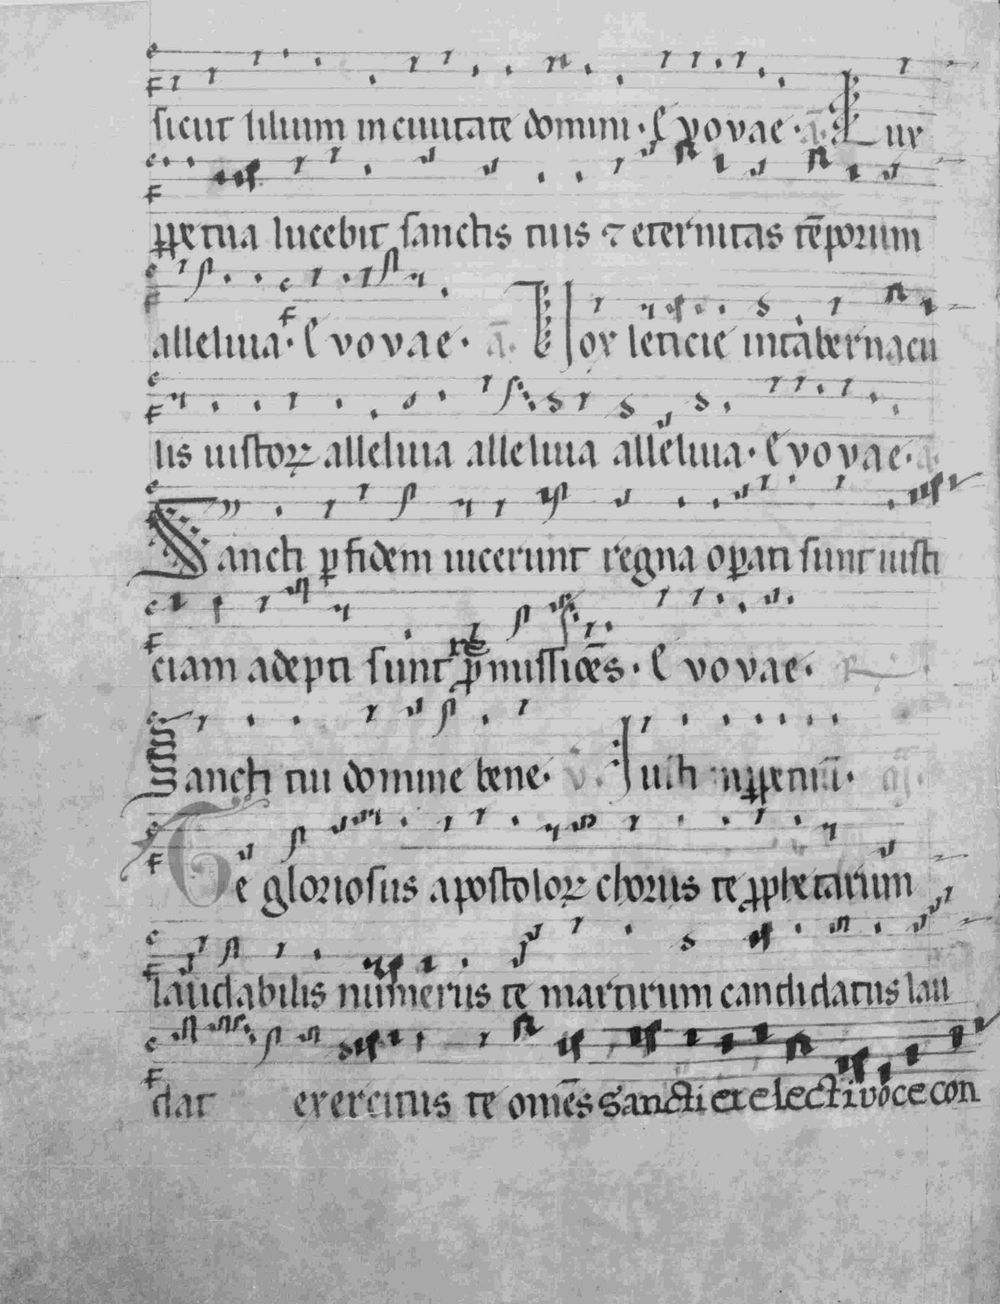 sicut lilium in ciuitate domini · E v o v a e · a. Lux
ꝑpetua lucebit sanctis tuis ⁊ eternitas tēporum
alleluia · E v o v a e · a. Uox leticie in tabernacu
lis iustoꝝ alleluia alleluia alleluia · E v o v a e · a.
Sancti ꝑ fidem uicerunt regna oꝑati sunt iusti
ciam adepti sunt ꝓmissiōes · E v o v a e ·
Sancti tui domine bene · v. Iusti in ꝑpetuū ·
Te gloriosus apostoloꝝ chorus te ꝓphetarum
laudabilis numerus te martirum candidatus lau
dat exercitus te omēs sancti et electi voce con